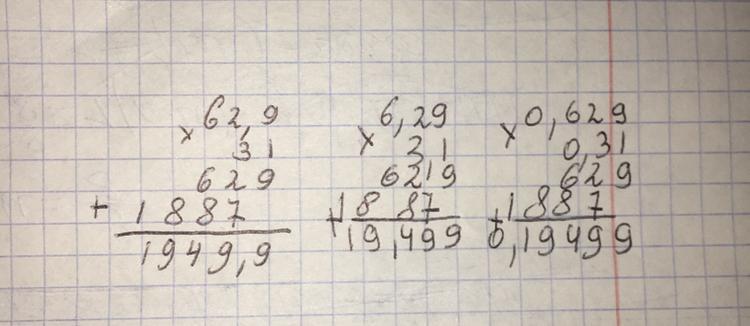 × 62,9
31
629
+ 1887
1949,9
× 6,29
3,1
629
+ 1887
19,499
× 0,629
0,31
629
+ 1887
0,19499